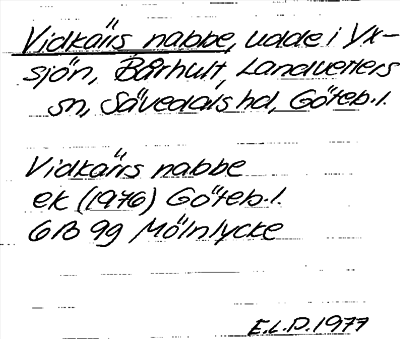 Vidkärrs nabbe, udde i Yx-
sjön, Bårhult, Landvetters
sn, Sävedals hd, Göteb.l.
Vidkärrs nabbe
ek (1976) Göteb.l.
6B 9g Mölnlycke
E.L.P. 1977